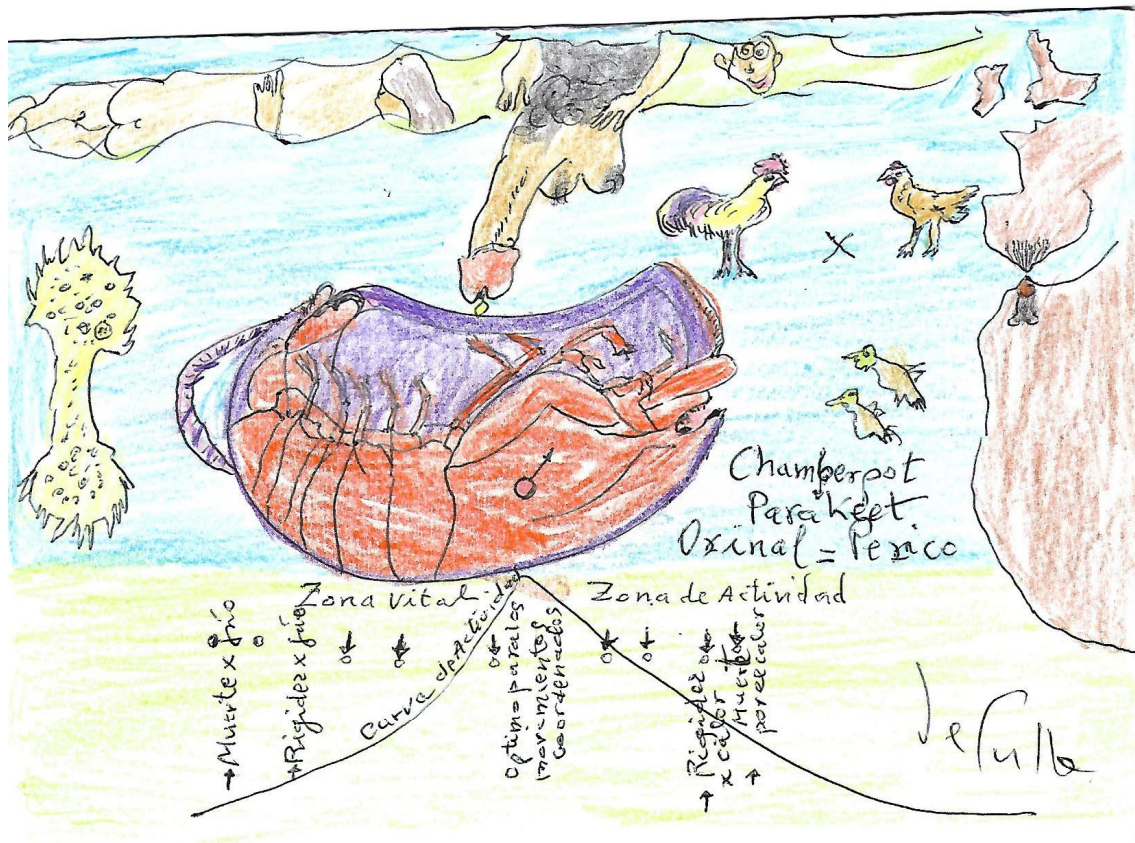 Chamberpot
Parakeet.
Orinal = Perico
Zona Vital
Zona de Actividad
Muerte x frío
Rigidez x frío
Curva de Actividad
Optimo para los
movimientos
coordenados
Rigidez
x calor
Muerte
por el calor